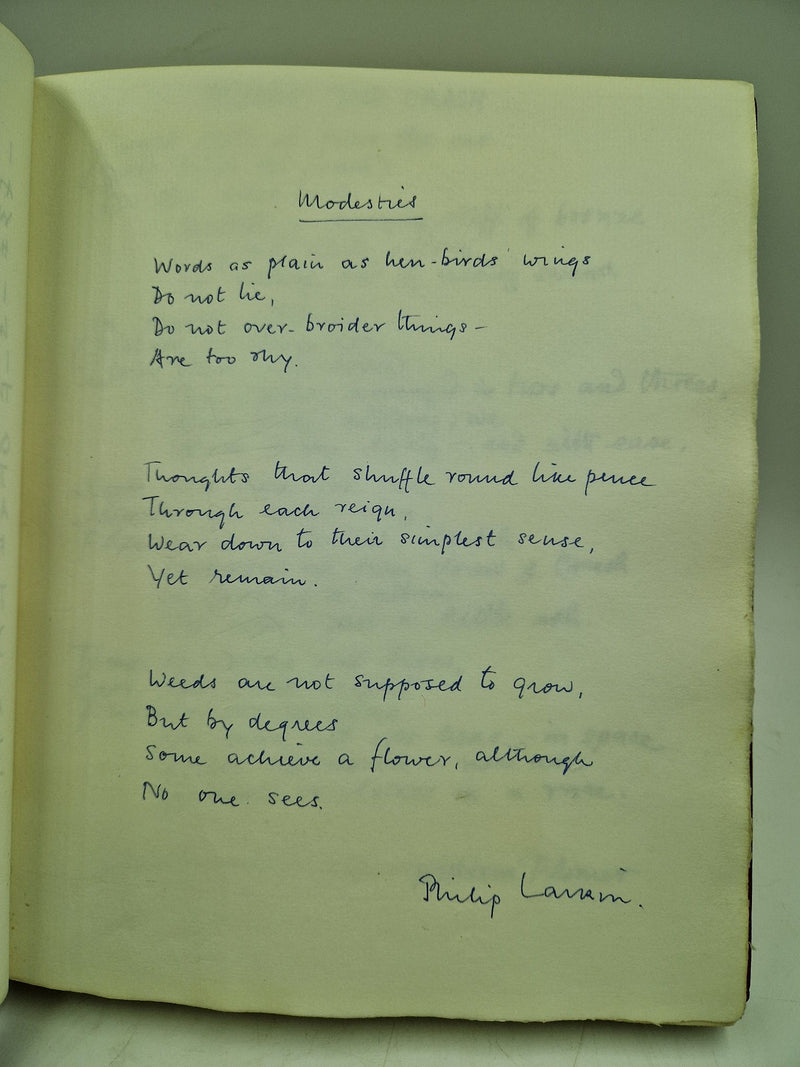 Modesties
Words as plain as hen-birds' wings
Do not lie,
Do not over-broider things –
Are too shy.
Thoughts that shuffle round like pence
Through each reign,
Wear down to their simplest sense,
Yet remain.
Weeds are not supposed to grow,
But by degrees
Some achieve a flower, although
No one sees.
Philip Larkin.